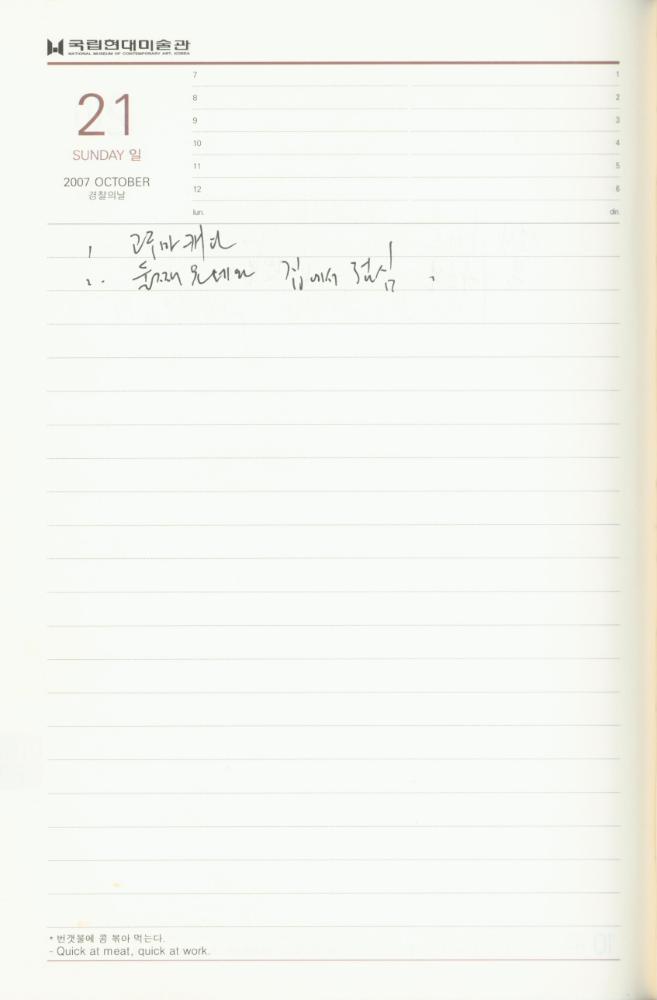 국립현대미술관
NATIONAL MUSEUM OF CONTEMPORARY ART, KOREA
21
SUNDAY 일
2007 OCTOBER
경찰의날
7
8
9
10
11
12
lun.
1
2
3
4
5
6
din.
1 고구마 캐다
2. 둘째 집에서 점심
* 번갯불에 콩 볶아 먹는다.
- Quick at meat, quick at work.